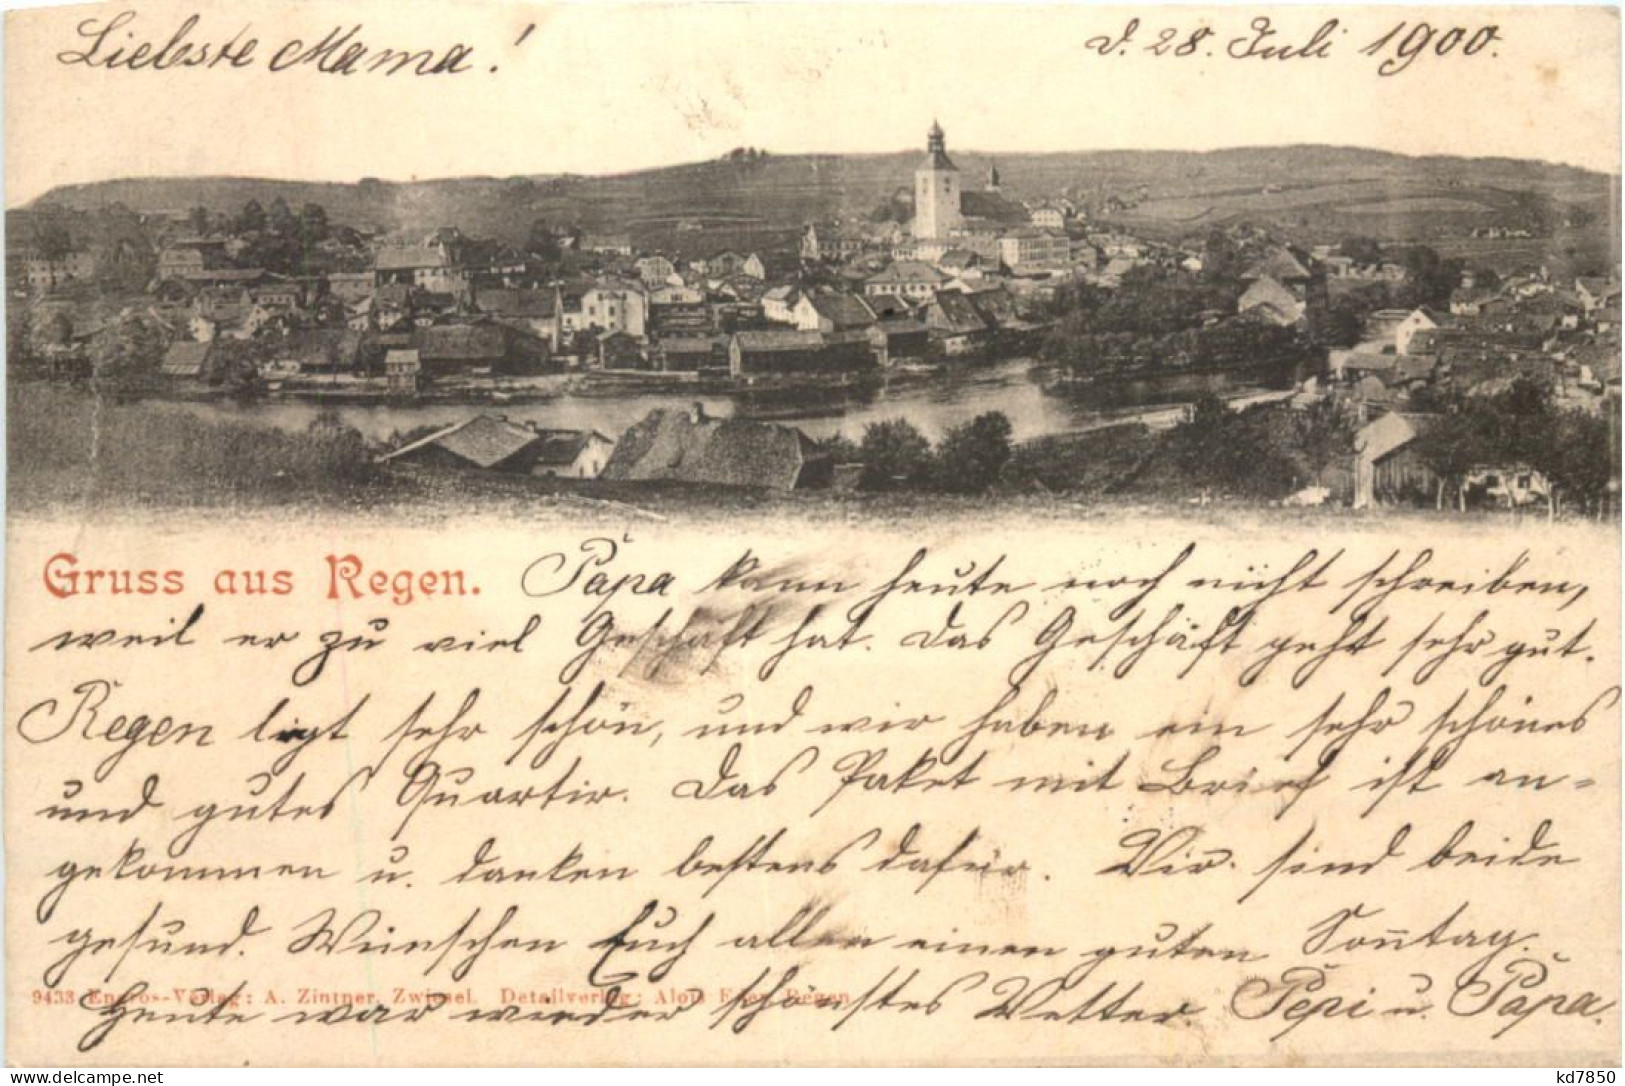 Liebste Mama!
d. 28. Juli 1900.
Gruss aus Regen. Papa kann heute noch nicht schreiben,
weil er zu viel Geschäft hat. Das Geschäft geht sehr gut.
Regen liegt sehr schön, und wir haben ein sehr schönes
und gutes Quartir. Das Paket mit Brief ist an-
gekommen u. danken bestens dafür. Wir sind beide
gesund. Wünschen Euch allen einen guten Sonntag.
9433 Engros--Verlag: A. Zintner, Zwiesel. Detailverlag: Alois Regen
Heute war wieder schönstes Wetter. Pepi u. Papa.
kd7850